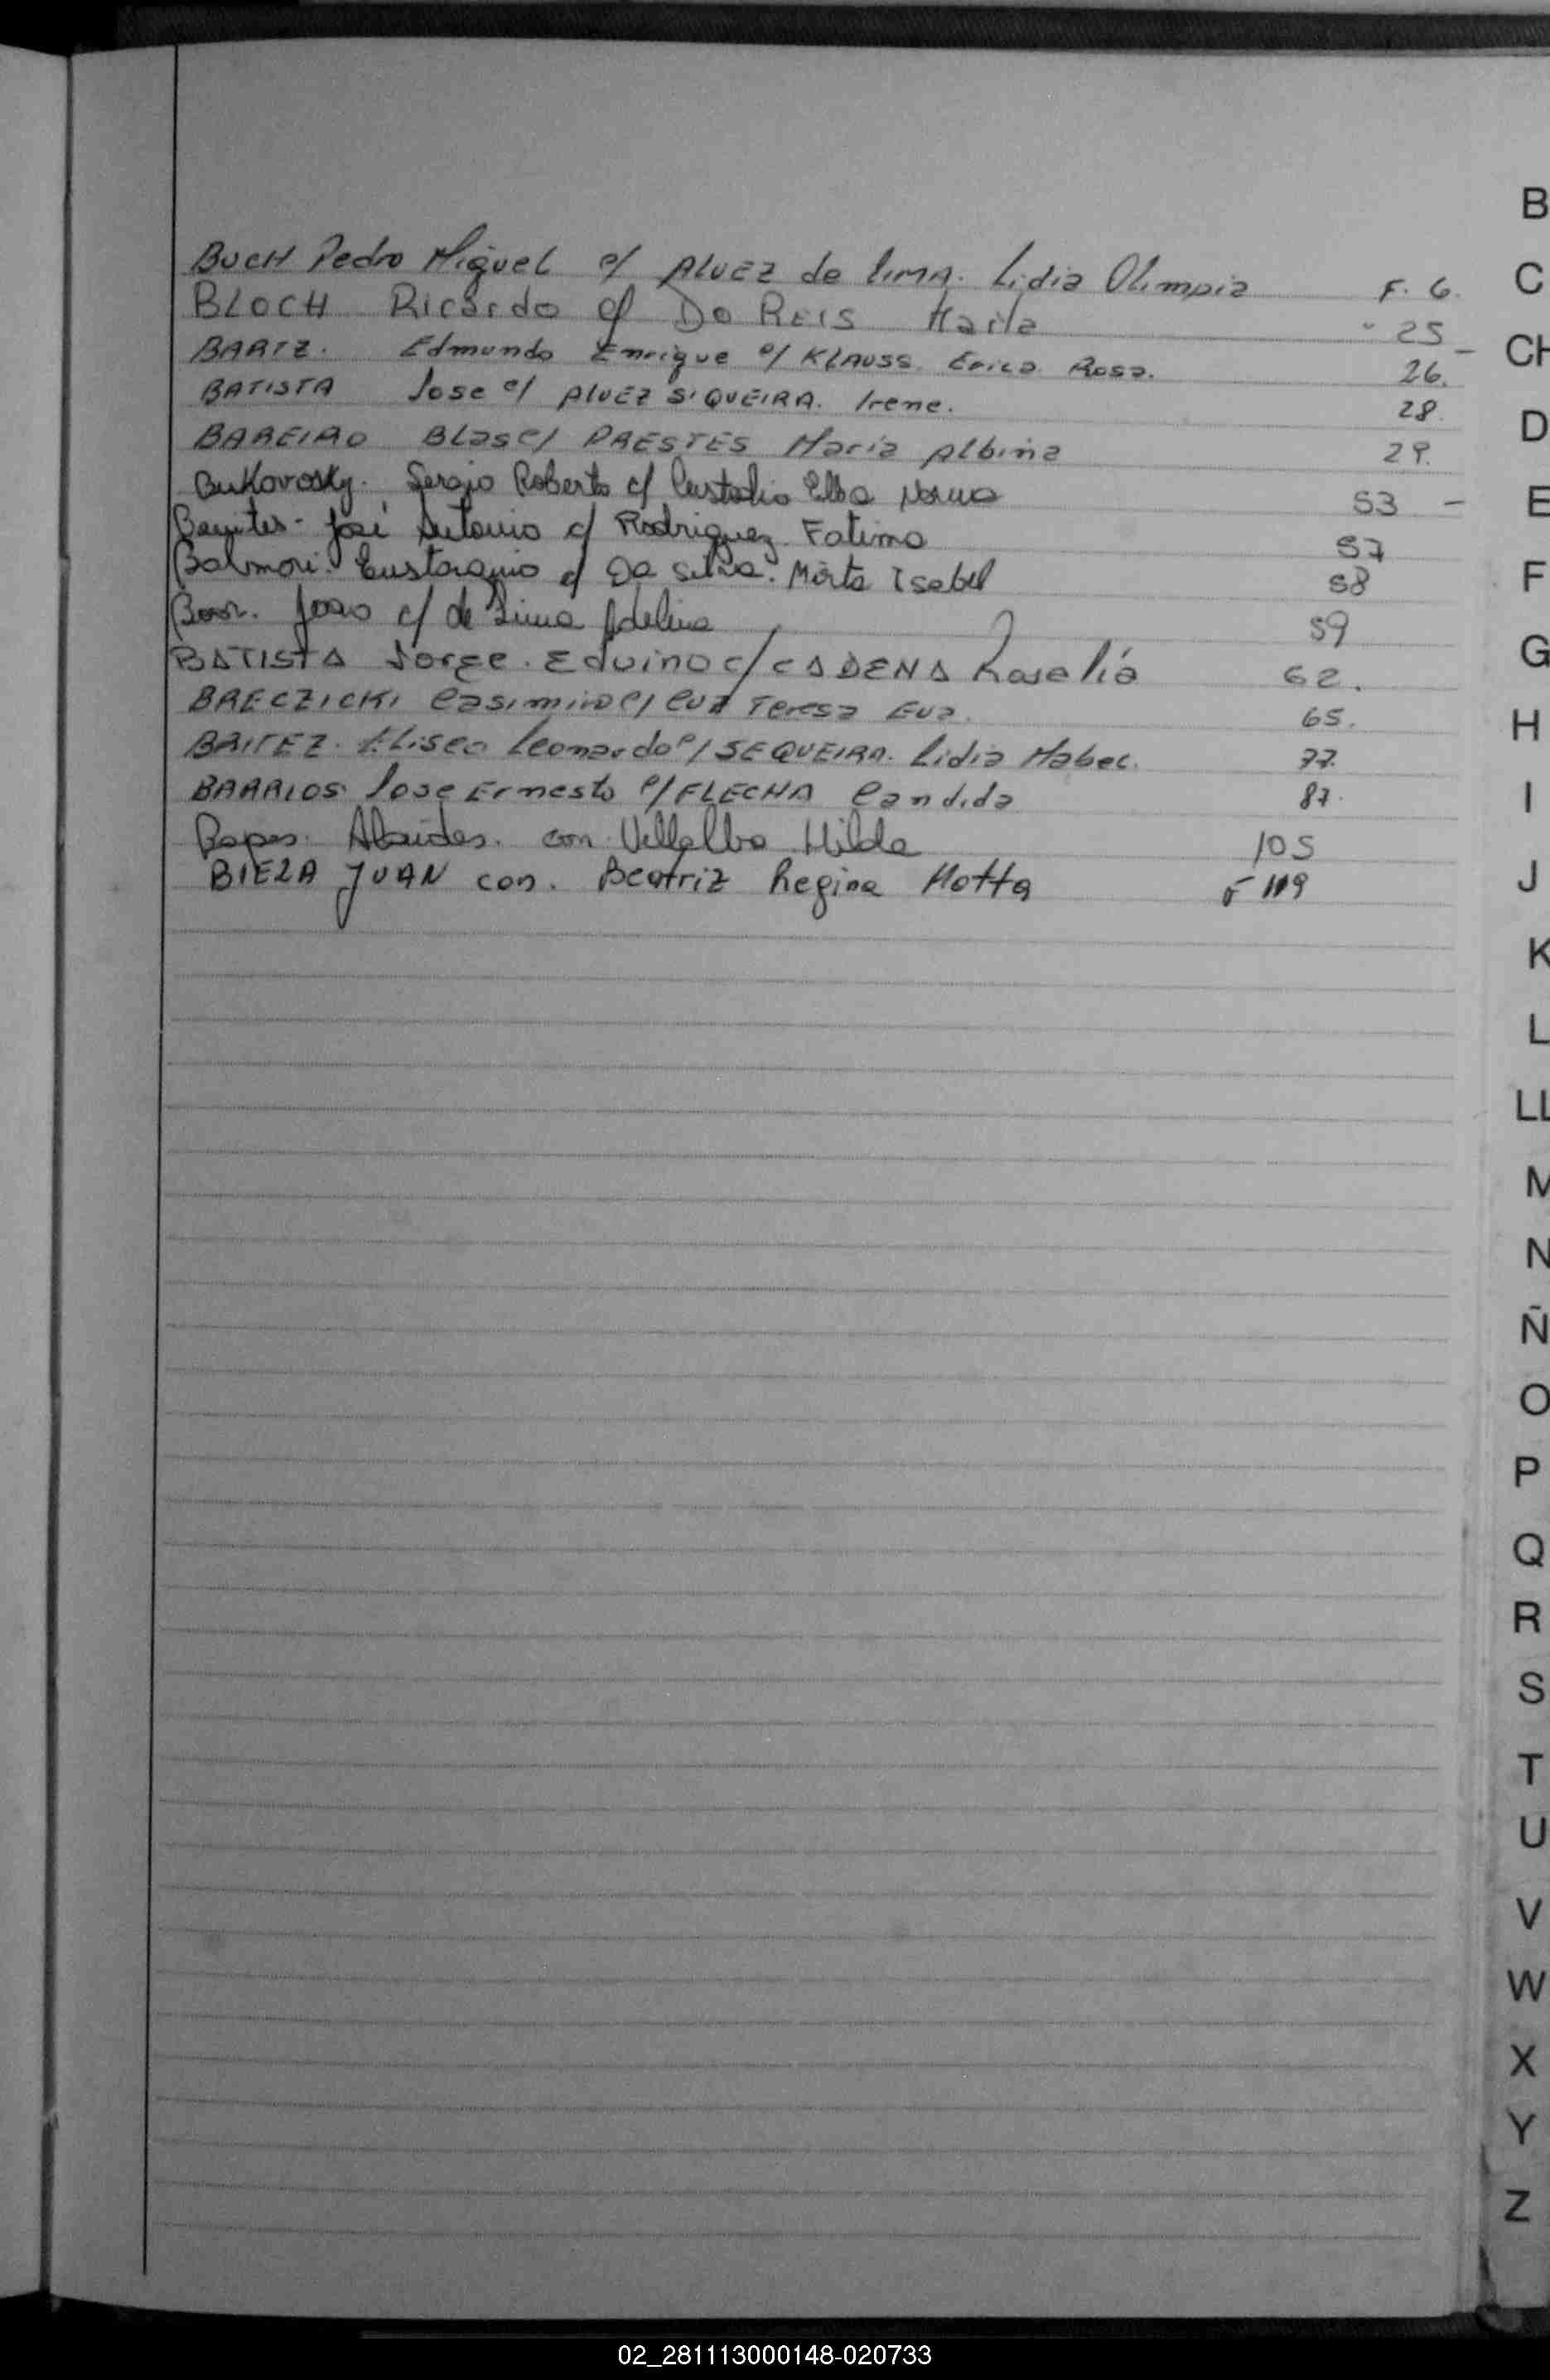 BUCH Pedro Miguel c/ ALVEZ de LIMA. Lidia Olimpia F. 6.
BLOCH Ricardo c/ Do REIS Maria " 25
BARTZ. Edmundo Enrique c/ KLAUSS. Erica Rosa. 26. -
BATISTA Jose c/ ALVEZ SIQUEIRA. Irene. 28.
BAREIRO Blas c/ PRESTES María Albina 29.
Bukovosky. Sergio Roberto c/ Custodio Elba Norma 53 -
Benites - José Antonio c/ Rodriguez Fatima 57
Balmori. Eustaquio c/ Da Silva. Mirta Isabel 58
Joao c/ de Lima Adelina 59
BATISTA Jorge. Eduino c/ CADENA Roselia 62.
BRECZICKI Casimiro c/ Teresa Eva. 65.
BRITEZ. Eliseo Leonardo c/ SEQUEIRA. Lidia Mabec. 77.
BARRIOS Jose Ernesto c/ FLECHA Candida 87.
Alcides. con Villalba Hilda 105
BIEZA JUAN con. Beatriz Regina Motta F 109
B
C
CH
D
E
F
G
H
I
J
K
L
LL
M
N
Ñ
O
P
Q
R
S
T
U
V
W
X
Y
Z
02_281113000148-020733